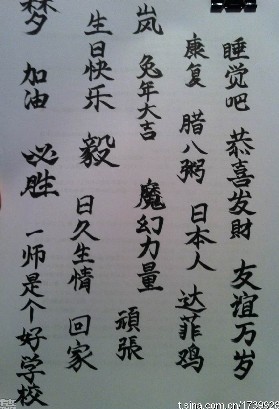 睡觉吧 恭喜发财 友谊万岁
康复 腊八粥 日本人 达菲鸡
岚 兔年大吉 魔幻力量 頑張
生日快乐 毅 日久生情 回家
梦 加油 必胜 一师是个好学校